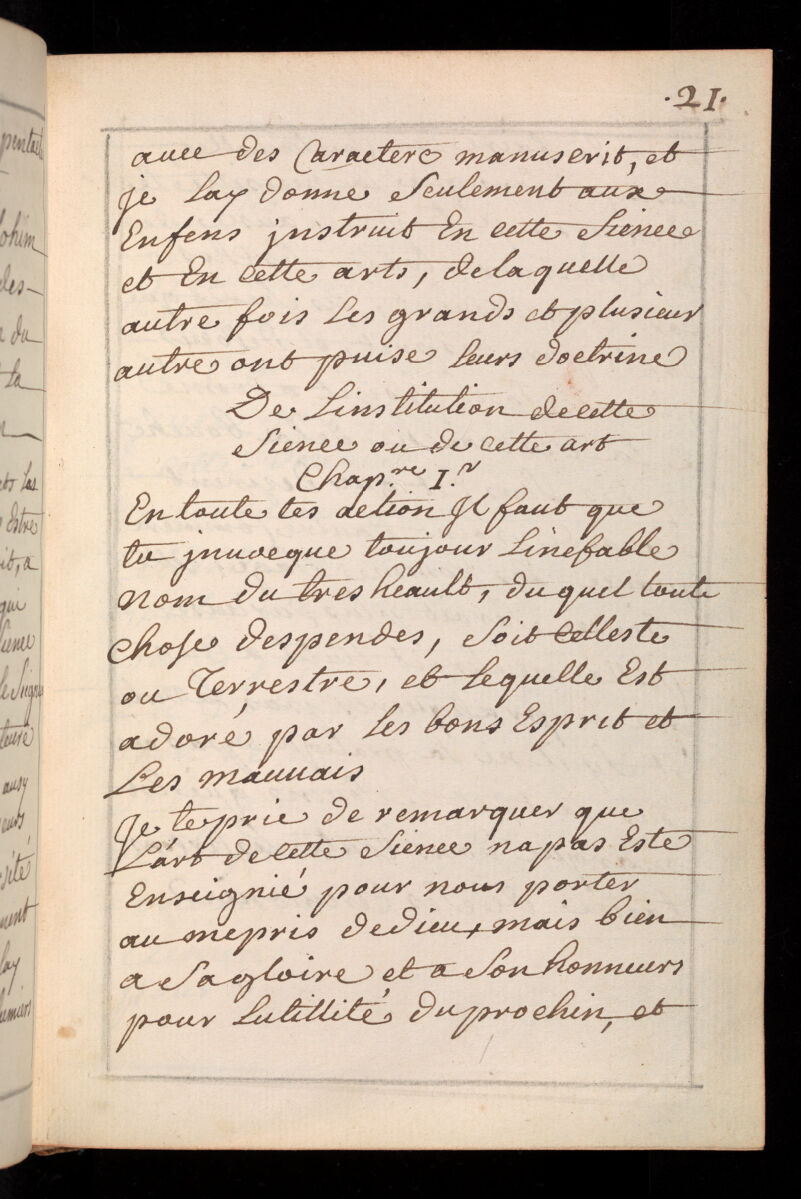 .21.
auec des Caractere manuscrit, et
je Lay donne Seulement aux
Enfens jnstruit En cette Sience
et En cette arts, de laquelle
autre fois Les grands et plusieur
autre ont puise leurs doctrine
De Linstitution de cette
Sience ou de cette art
Chap.re I.r
En toute tes action Jl faut que
tu jnuocque toujour Linefable
nom du tres heault, du quel toute
chose despendes, soit Celleste
ou Terrestre, et Lequelle Est
adoré par Les bons Esprit et
Les mauuais
Je te prie de remarquer que
L'art de cette Sience na pas Esté
Enseignié pour nous porter
au mepris de dieu, mais bien
a Sa gloire et a Son honneurs
pour Lutillité du prochin, et
pentac
ohim
des-
du
La
Las
Estre
it, a
qui
ience
le Seign
teure
ausy
eurs
sité
ment
lay
umiers